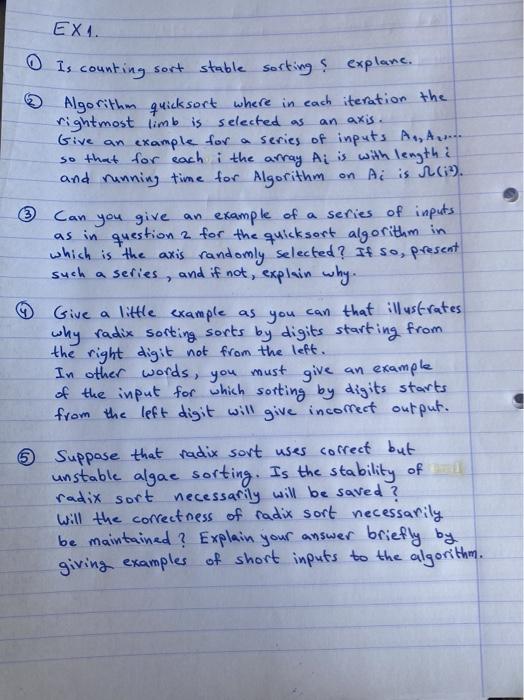 EX1.
① Is counting sort stable sorting? explane.
② Algorithm quicksort where in each iteration the
rightmost limb is selected as an axis.
Give an example for a series of inputs A₁, A₂,....
so that for each i the array Ai is with length i
and running time for Algorithm on Ai is Ω(i²).
③ Can you give an example of a series of inputs
as in question 2 for the quicksort algorithm in
which is the axis randomly selected? If so, present
such a series, and if not, explain why.
④ Give a little example as you can that illustrates
why radix sorting sorts by digits starting from
the right digit not from the left.
In other words, you must give an example
of the input for which sorting by digits starts
from the left digit will give incorrect output.
⑤ Suppose that radix sort uses correct but
unstable algae sorting. Is the stability of
radix sort necessarily will be saved?
Will the correctness of radix sort necessarily
be maintained? Explain your answer briefly by
giving examples of short inputs to the algorithm.